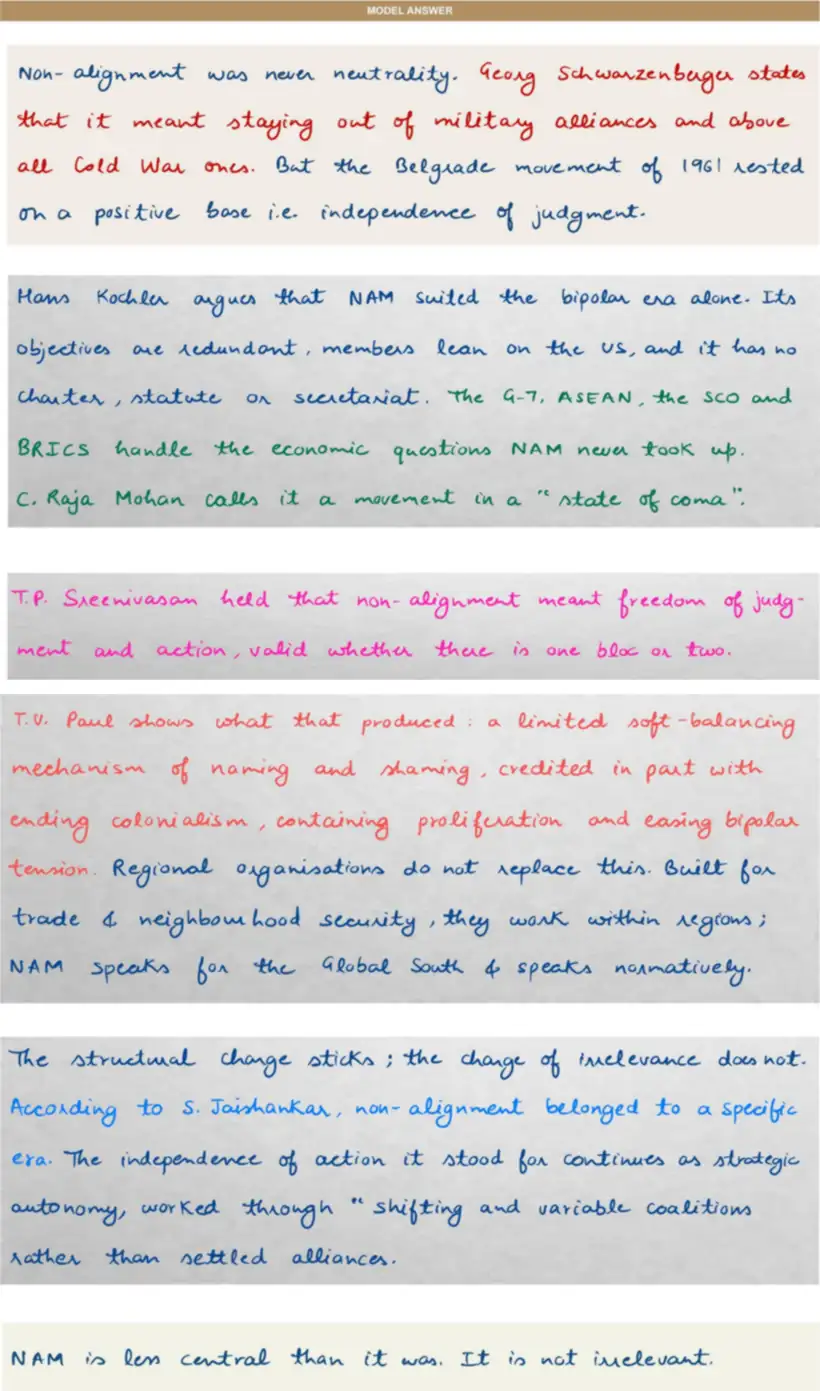 MODEL ANSWER
Non-alignment was never neutrality. Georg Schwarzenberger states
that it meant staying out of military alliances and above
all Cold War ones. But the Belgrade movement of 1961 rested
on a positive base i.e. independence of judgment.
Hans Kochler argues that NAM suited the bipolar era alone. Its
objectives are redundant, members lean on the US, and it has no
charter, statute or secretariat. The G-7, ASEAN, the SCO and
BRICS handle the economic questions NAM never took up.
C. Raja Mohan calls it a movement in a "state of coma".
T.P. Sreenivasan held that non-alignment meant freedom of judg-
ment and action, valid whether there is one bloc or two.
T.V. Paul shows what that produced: a limited soft-balancing
mechanism of naming and shaming, credited in part with
ending colonialism, containing proliferation and easing bipolar
tension. Regional organisations do not replace this. Built for
trade & neighbourhood security, they work within regions;
NAM speaks for the Global South & speaks normatively.
The structural charge sticks; the charge of irrelevance does not.
According to S. Jaishankar, non-alignment belonged to a specific
era. The independence of action it stood for continues as strategic
autonomy, worked through "shifting and variable coalitions
rather than settled alliances.
NAM is less central than it was. It is not irrelevant.